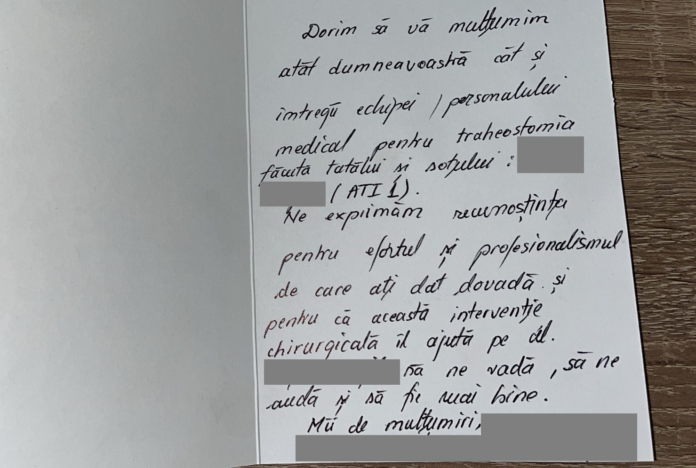 Dorim să vă mulțumim
atât dumneavoastră cât și
întregii echipei / personalului
medical pentru traheostomia
făcută tatălui și soțului :
( ATI 1 ).
Ne exprimăm recunoștința
pentru efortul și profesionalismul
de care ați dat dovadă și
pentru că această intervenție
chirurgicală îl ajută pe dl.
să ne vadă, să ne
audă și să fie mai bine.
Mii de mulțumiri,